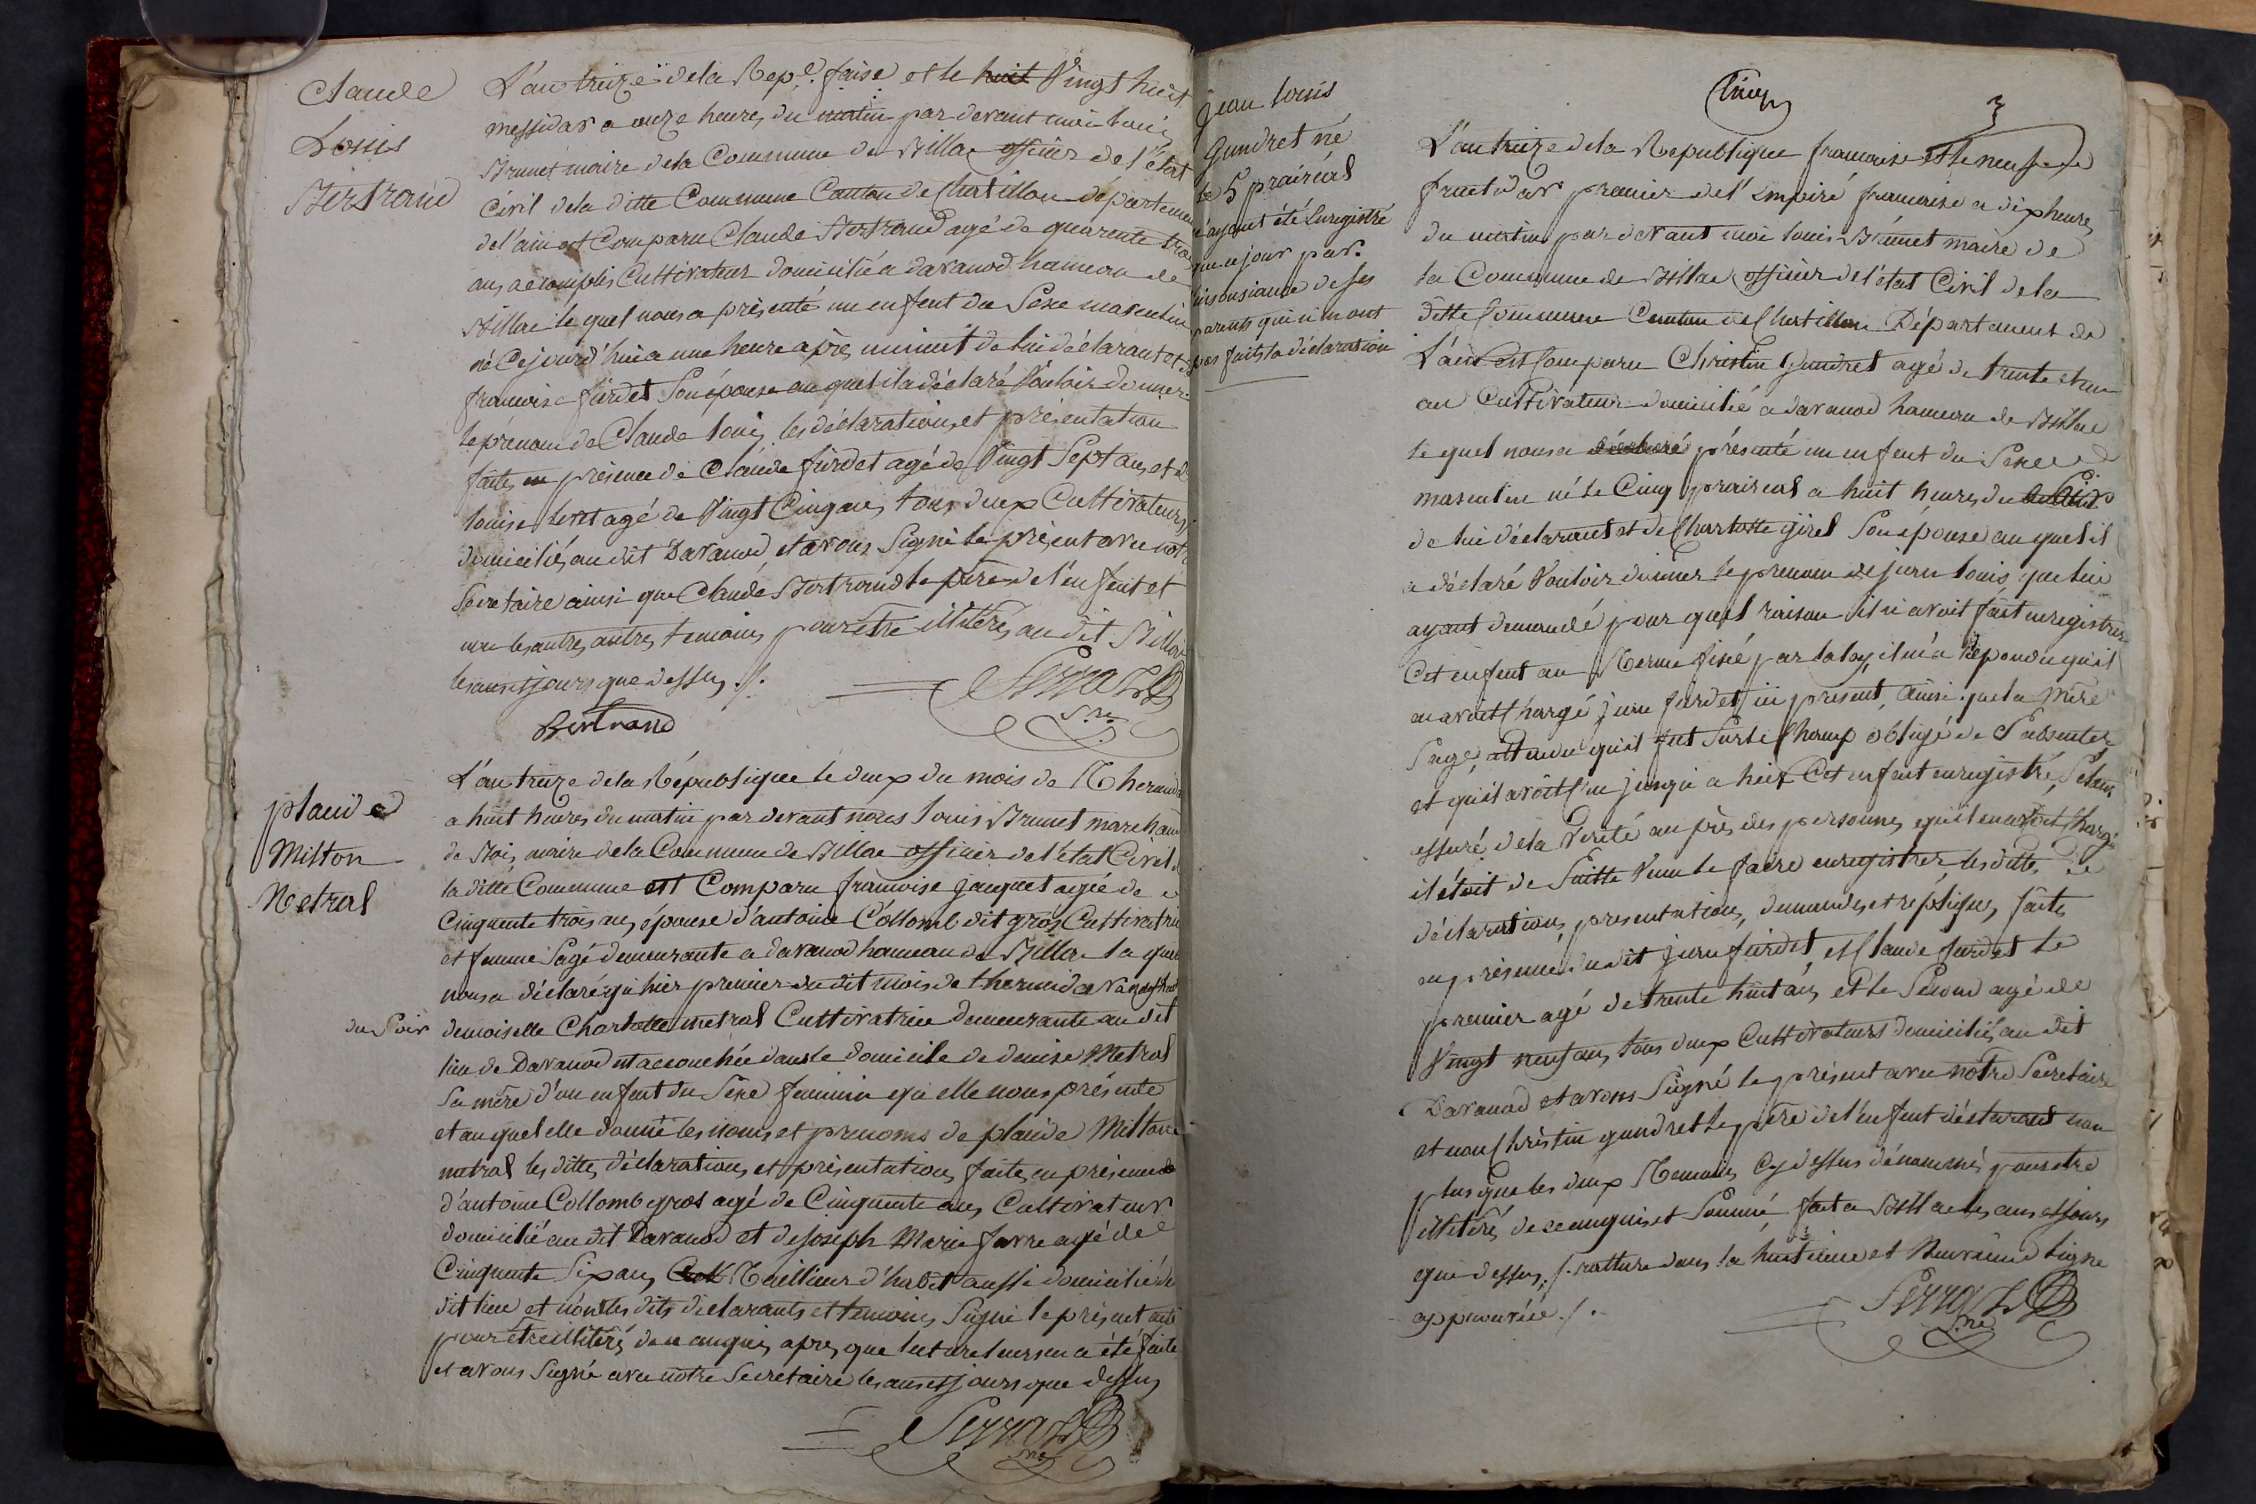 Claude
Louis
Bertrand
L'an treize de la Rep.e faise et le huit Vingt huit
messidor a onze heures du matin par devant moi Louis
Brunet maire de la Commune de Billac officier de l'état
Civil de la ditte Commune Canton de Chatillon département
de l'ain est Comparu Claude Bertrand agé de quarente trois
ans accomplis Cultivateur domicilié a davanod hameau de
Billac le quel nous a présenté un enfent du Sexe masculin
né Cejourd'hui a une heure après minuit de lui déclarant et de
francoise furdet Son épouse au quel il a déclaré Vouloir donner
le prenom de Claude Louis les déclaration et présentation
faites en présence de Claude furdet agé de Vingt Sept ans et de
louise agé de Vingt Cinq ans tous deux Cultivateurs
domiciliés au dit Davanod et avons Signé le présent avec notre
Secretaire ainsi que Claude Bertrand le père de l'enfent et
non les autres autres temoins pour être illiteré au dit Billac
les ans et jours que dessus ./.
Bertrand
S.re
plaside
Milton
Metral
L'an treize de la République le deux du mois de Thermidor
a huit heures du matin par devant nous Louis Brunet marchand
de Bois maire de la Commune de Billac officier de l'état Civil de
la ditte Commune est Comparu francoise jacquet agée de
Cinquente trois ans épouse d'antoine Collomb dit gros Cultivatrice
et femme Sage demeurante a davanod hameau de Billac la quelle
nous a déclaré qu'hier premier du dit mois de thermidor a
du Soir demoiselle Charlotte metral Cultivatrice demeurante au dit
lieu de Davanod est accouchée dans le domicile de denise Metral
Sa mère d'un enfent du Sexe feminin qu'elle nous présente
et au quel elle donne les noms et prenoms de plaside Miltone
metral les dittes déclarations et présentations faites en présence de
d'antoine Collomb gros agé de Cinquente ans Cultivateur
domicilié au dit Davanod et de Joseph Marie favre agé de
Cinquente Six ans Tailleur d'habit aussi domicilié du
dit lieu et non les dits déclarants et temoins Signé le présent acte
pour être illiteré de ce anquis apres que lecture leur en a été faite
et avons Signé avec notre Secretaire les ans et jours que dessus
S.re
jean louis
Gundret né
le 5 prairéal
n'ayant été Enregistré
que ce jour par
linsousiance de ses
parents qui n'en ont
pas faits la déclaration
Cinq
3
L'an treize de la Republique francaise et le neuf de
fructidor premier de l'Empiré francaise a dix heures
du matin par devant moi louis Brunet maire de
la Commune de Billac officier de l'état Civil de la
ditte Commune Canton de Chatillon Département de
L'ain est Comparu Christin Gundret agé de trente et un
an Cultivateur domicilié a davanod hameau de Billac
le quel nous a déclaré présenté un enfent du Sexe
masculin né le Cinq prairéal a huit heures du
de lui déclarant et de Charlotte girel Son épouse au quel il
a déclaré Vouloir donner le prenom de jean louis que lui
ayant demandé pour quel raison il n'avoit fait enregistrer
Cet enfent au Terme fixé par la loy, il m'a Répondu qu'il
en avoit Chargé jean furdet ici présent, ainsi que la mère
Sage attendu qu'il fut Sur le Champ obligé de S'absenter
et qu'il avoit Cru jusqu'a hier Cet enfent enregistré, S'etant
assuré de la Verité au près des personnes qu'il en avoit Chargé
il étoit de Suitte Venu le faire enregistrer les dittes
déclaration, présentation, demandes et répliques faites
en présence du dit jean furdet, et Claude furdet le
premier agé de trente huit ans, et le Second agé de
Vingt neuf ans, tous deux Cultivateurs domiciliés au dit
Davanod et avons Signé le présent avec nôtre Secretaire
et non Christin gundret le père de l'enfent déclarant non
plus que les deux Temoins Cy dessus dénommés pour être
illiteré, de ce anquis et Sommé, fait a Billac les ans et jours
que dessus ./. ratture dans la huitième et Neuvaine ligne
approuvée ./.
S.re